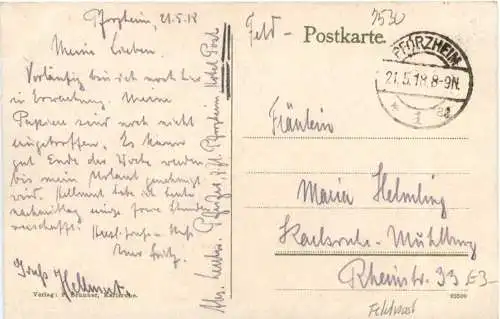 Pforzheim, 21.5.18
Meine Lieben.
Vorläufig bin ich noch hier
in Erwartung. Meine
Papiere sind noch nicht
eingetroffen. Es kann
gut Ende der Woche werden
bis mein Urlaub genehmigt
wird. Hellmut habe ich heute
nachmittag einige frohe Stunden
verschafft. Herzl. Gruß
Euer Fritz.
Gruß Hellmut.
Pforzheim Hotel Post
Verlag: Brunner, Karlsruhe.
Feld-
Postkarte.
PFORZHEIM
21.5.18.8-9N.
* 1
Fräulein
Maria Helmling
Karlsruhe-Mühlburg
Rheinstr. 33
Feldpost